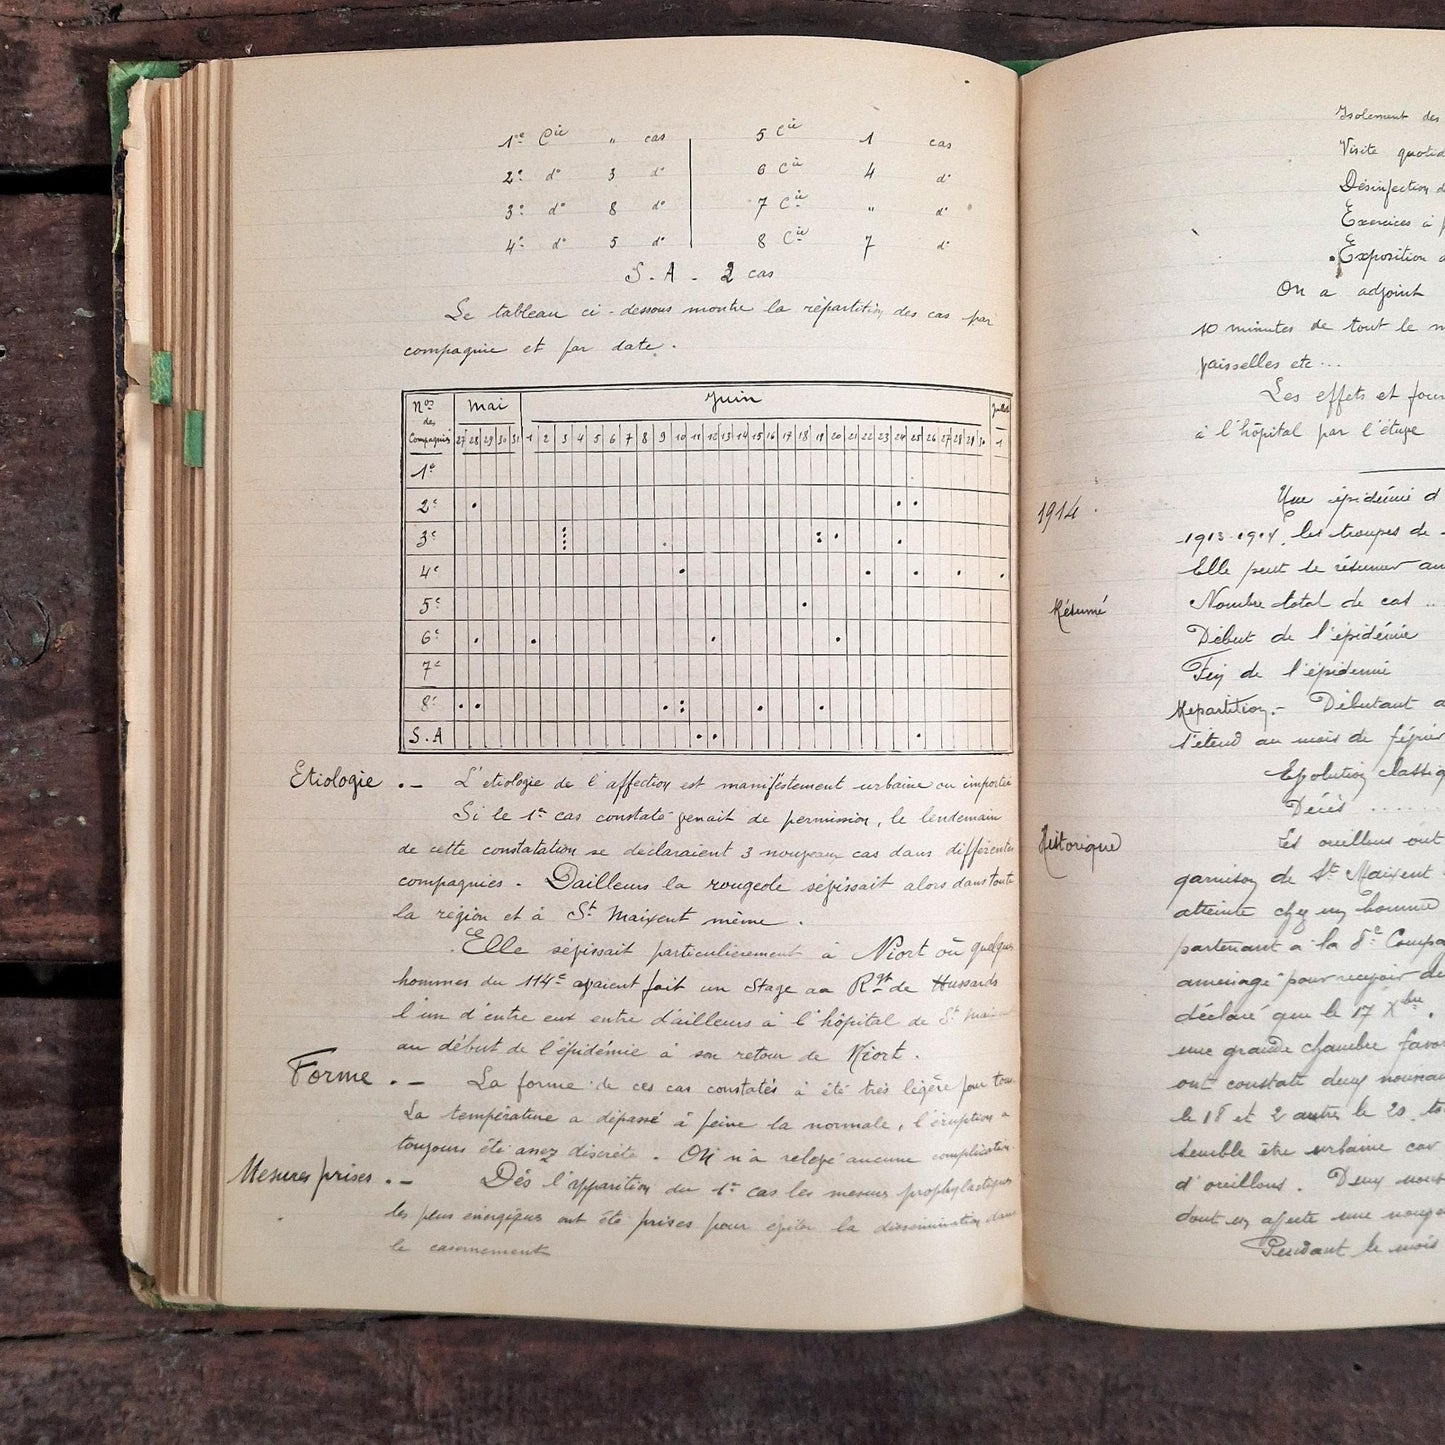 1e Cie " cas 5 Cie 1 cas
2e do 3 do 6 Cie 4 do
3e do 8 do 7 Cie " do
4e do 5 do 8 Cie 7 do
S. A. 2 cas
Le tableau ci-dessous montre la répartition des cas par
compagnie et par date.
Nos des Compagnies Mai Juin Juillet
27 28 29 30 31 1 2 3 4 5 6 7 8 9 10 11 12 13 14 15 16 17 18 19 20 21 22 23 24 25 26 27 28 29 30 1
1e
2e
3e
4e
5e
6e
7e
8e
S.A
Etiologie .- L'etiologie de l'affection est manifestement urbaine ou importée
Si le 1er cas constaté venait de permission, le lendemain
de cette constatation se déclaraient 3 nouveaux cas dans différentes
compagnies. Dailleurs la rougeole sévissait alors dans toute
la région et à St Maixent même.
Elle sévissait particulièrement à Niort où quelques
hommes du 114e avaient fait un stage au Rgt de Hussards
l'un d'entre eux entre d'ailleurs à l'hôpital de St
au début de l'épidémie à son retour de Niort.
Forme .- La forme de ces cas constatés a été très légère pour tous
La température a dépassé à peine la normale, l'éruption a
toujours été assez discrète. On n'a relevé aucune complication
Mesures prises .- Dès l'apparition du 1er cas les mesures prophylactiques
les plus énergiques ont été prises pour éviter la dissémination dans
le casernement
Isolement des
Visite quotid
Désinfection d
Exercices à
Exposition
On a adjoint
10 minutes de tout le
vaisselles etc...
Les effets et four
à l'hôpital par l'étuve
1914. Une épidémie d
1913-1914, les troupes de
Elle peut se résumer au
Résumé Nombre total de cas ..
Début de l'épidémie
Fin de l'épidémie
Répartition.- Débutant
s'étend au mois de février
Evolution classiq
Décès ......
Historique Les oreillons ont
garnison de St Maixent
atteinte chez un homme
partenant à la 8e Compa
amenagé pour recevoir de
déclaré que le 17 Xbre.
une grande chambre favor
ont constaté deux nouveau
le 18 et 2 autres le 20.
semble être urbaine car
d'oreillons. Deux
dont un ajoute une
Pendant le mois